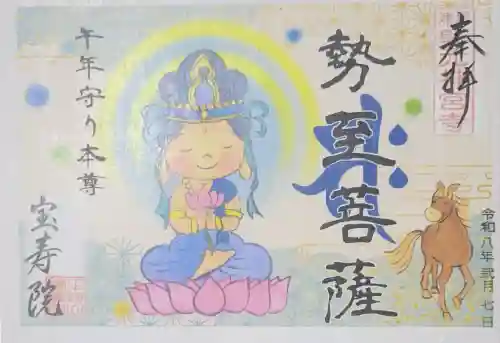 奉拝
勢至菩薩
午年守り本尊
宝寿院
令和八年弐月七日